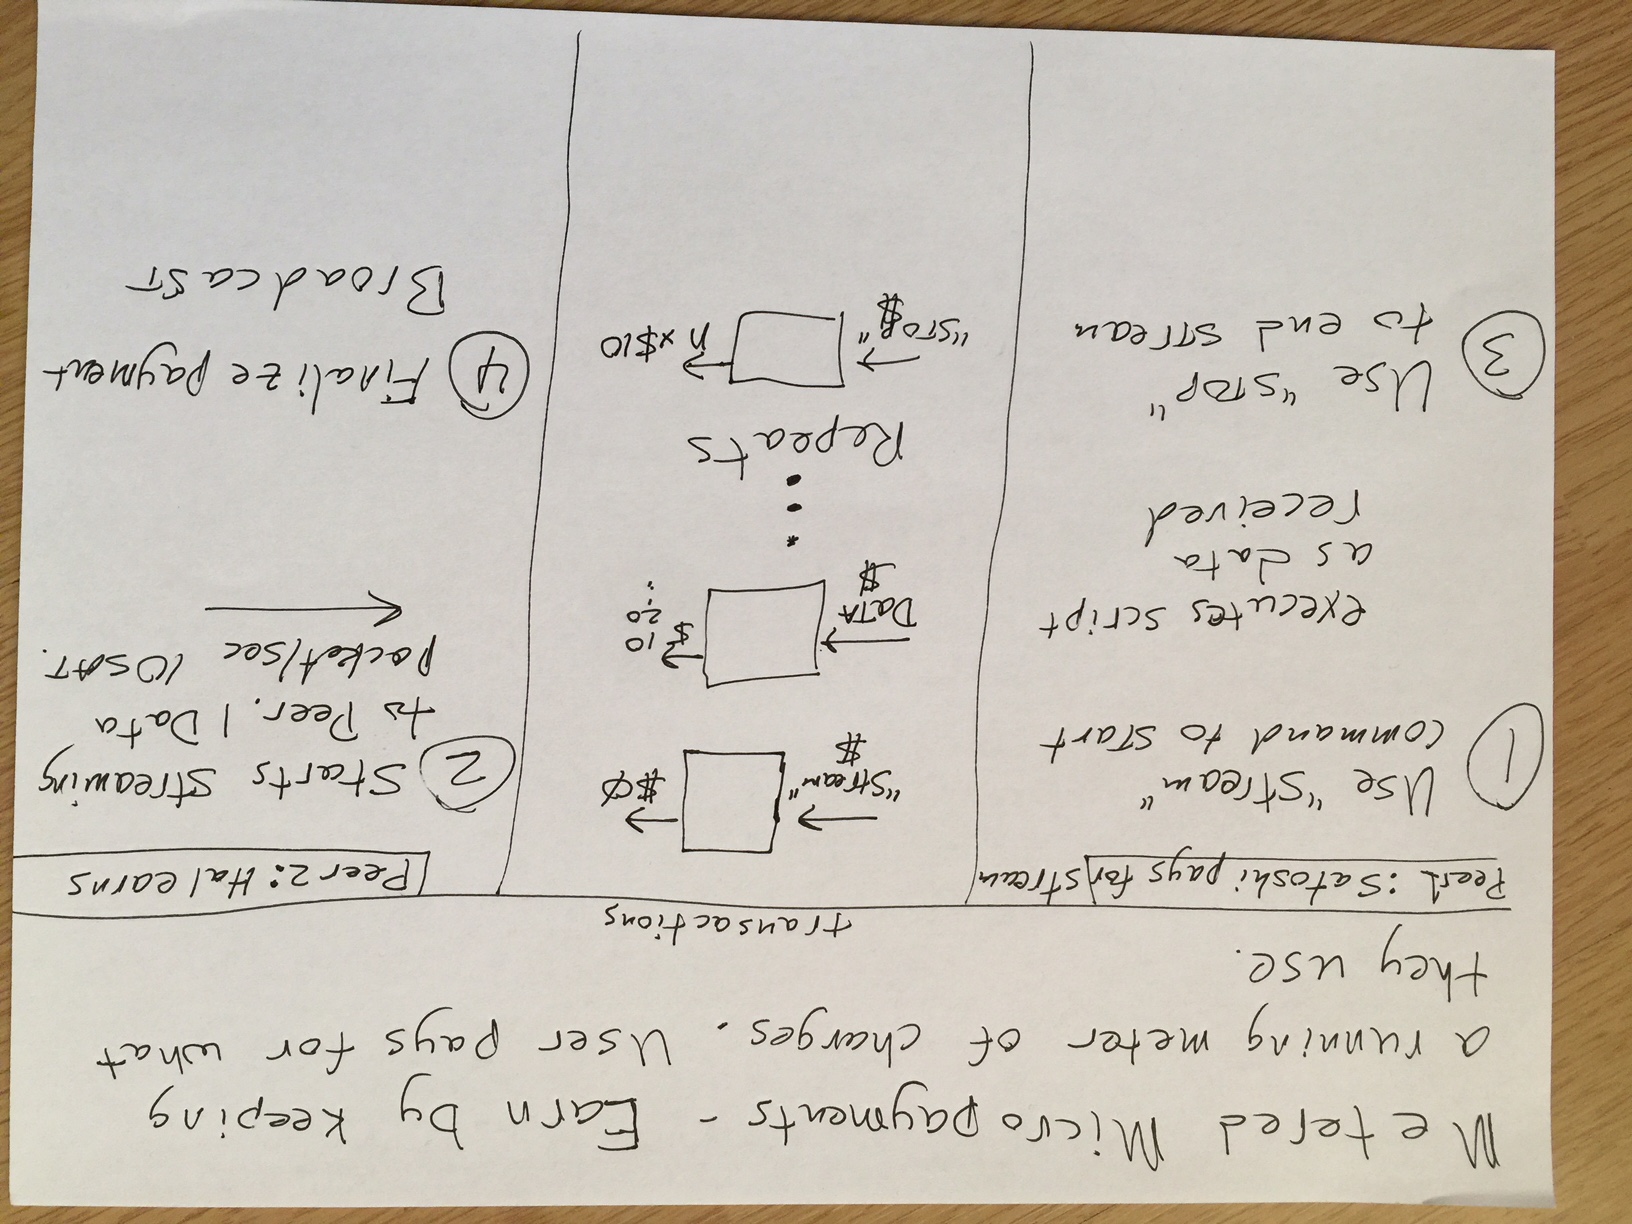 Metered Micropayments - Earn by keeping
a running meter of charges. User pays for what
they use.
transactions
Peer1 : Satoshi pays for stream
Peer 2: Hal earns
1 Use "stream"
command to start
executes script
as data
received
3 Use "STOP"
to end stream
"Stream"
$
$0
DATA
$
$ 10
20
:
Repeats
"STOP"
$
n x $10
2 Starts streaming
to Peer. 1 Data
packet/sec 10 SAT.
4 Finalize payment
Broadcast